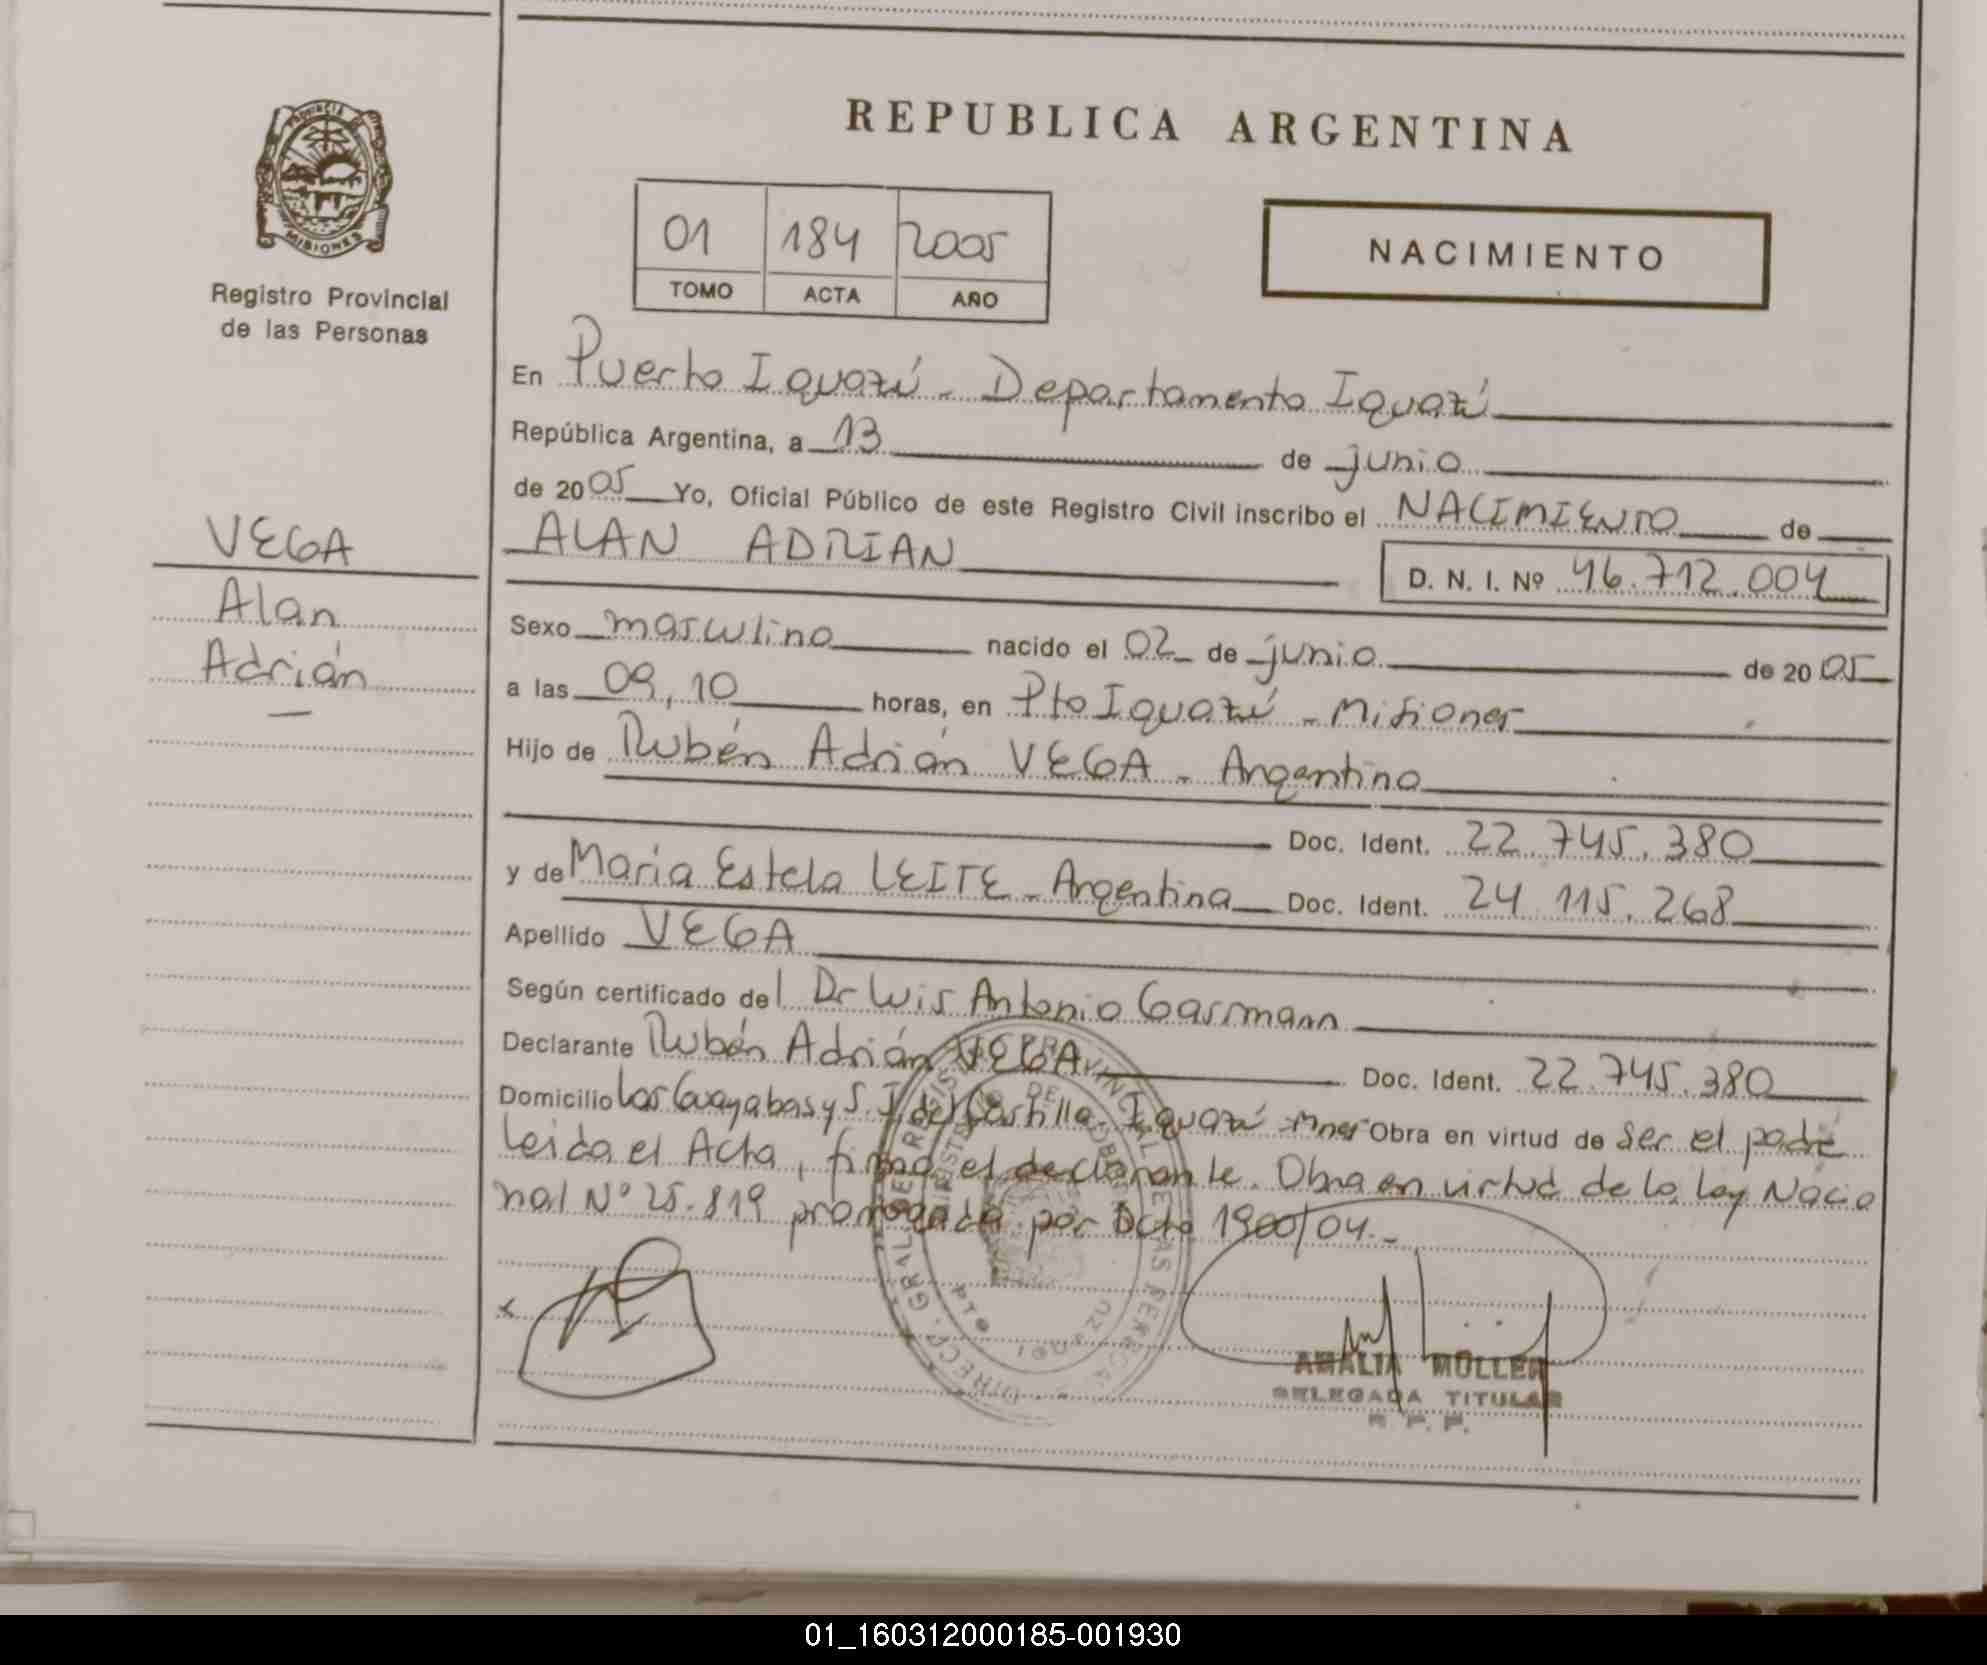 REPUBLICA ARGENTINA
PROVINCIA DE
MISIONES
Registro Provincial
de las Personas
01 184 2005
TOMO ACTA AÑO
NACIMIENTO
VEGA
Alan
Adrián
En Puerto Iguazú - Departamento Iguazú
República Argentina, a 13 de junio
de 2005 Yo, Oficial Público de este Registro Civil inscribo el NACIMIENTO de
ALAN ADRIAN
D. N. I. Nº 46.712.004
Sexo masculino nacido el 02 de junio de 2005
a las 09,10 horas, en Pto Iguazú - Misiones
Hijo de Rubén Adrián VEGA - Argentino
Doc. Ident. 22.745.380
y de Maria Estela LEITE - Argentina Doc. Ident. 24 115.268
Apellido VEGA
Según certificado del Dr Luis Antonio Gassmann
Declarante Rubén Adrián VEGA Doc. Ident. 22.745.380
Domicilio Los Guayabas y S. I. del Castillo Iguazú - Mnes Obra en virtud de ser el padre
Leida el Acta, firma el declarante. Obra en virtud de la Ley Nacio
nal Nº 25.819 prorrogada por Dcto 1900/04.-
AMALIA MÜLLER
DELEGADA TITULAR
R. P. P.
01_160312000185-001930